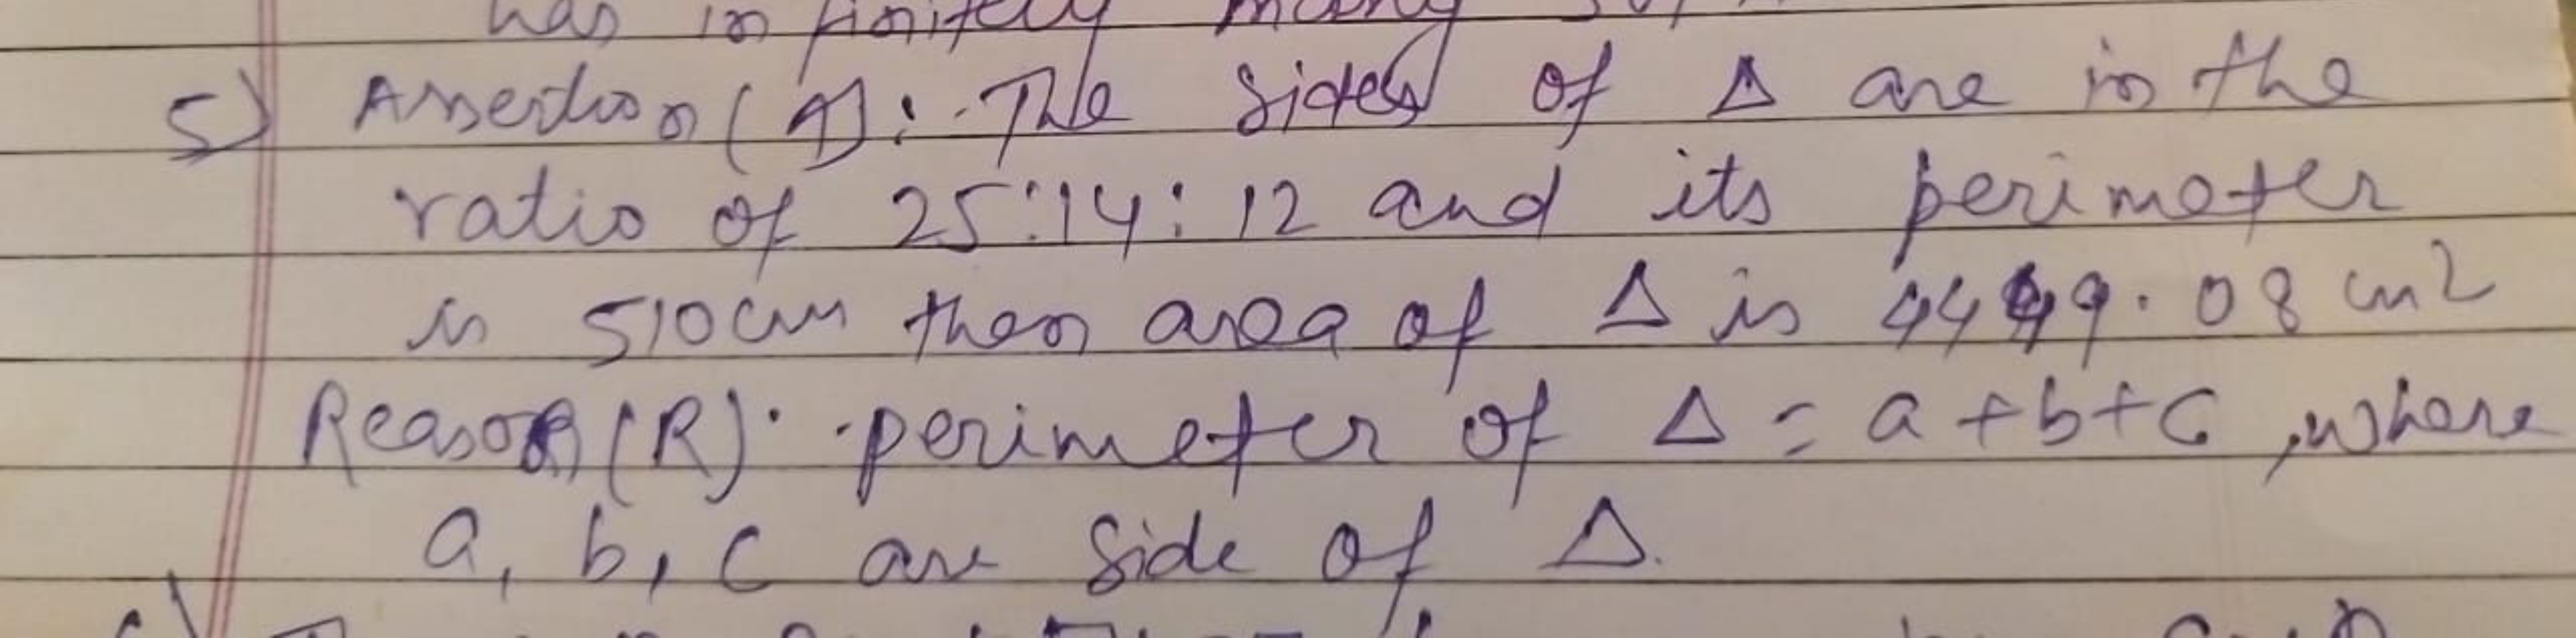 has infinitely many
5) Assertion (A): The sides of Δ are in the
ratio of 25:14:12 and its perimeter
is 510cm then area of Δ is 4449.08 cm2
Reason (R): perimeter of Δ = a+b+c, where
a, b, c are side of Δ.